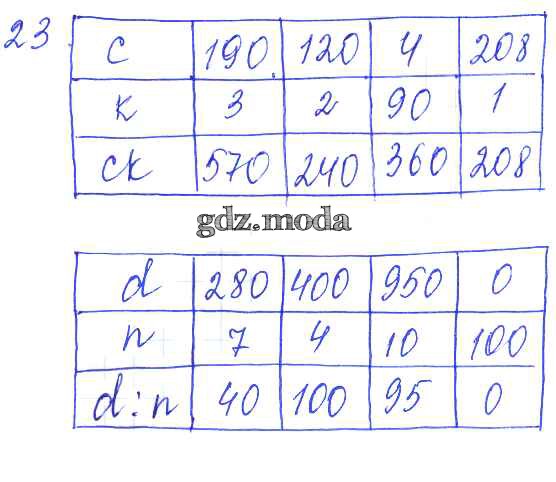 23
c 190 120 4 208
к 3 2 90 1
ck 570 240 360 208
gdz.moda
d 280 400 950 0
n 7 4 10 100
d:n 40 100 95 0